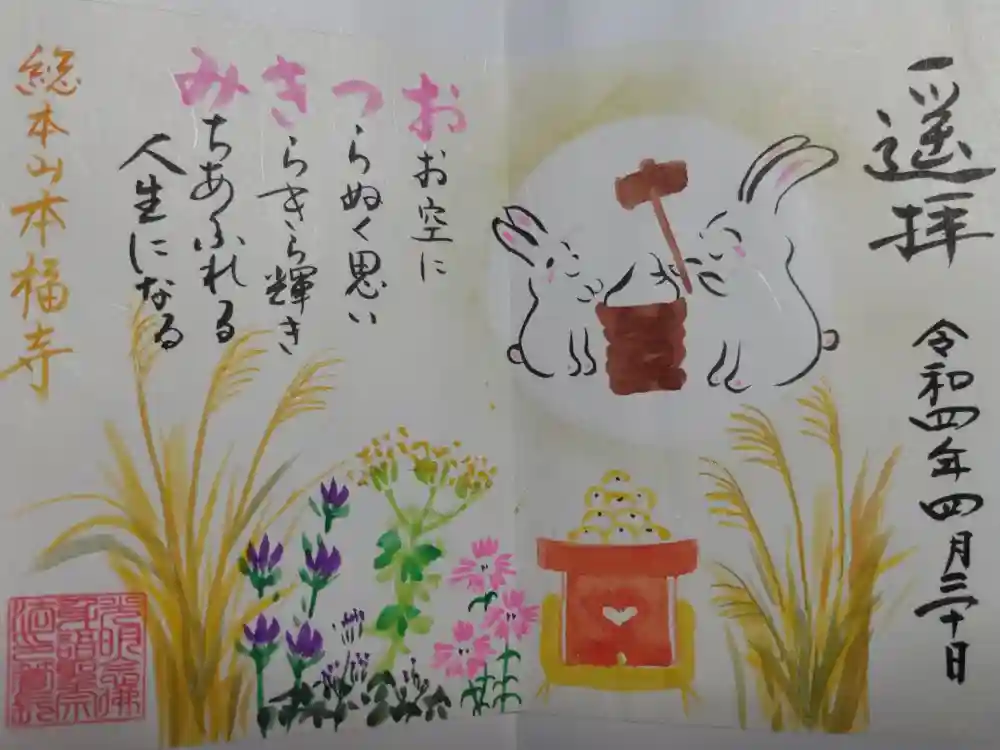 遥拝
令和四年四月三十日
おお空に
つらぬく思い
きらきら輝き
みちあふれる
人生になる
総本山本福寺